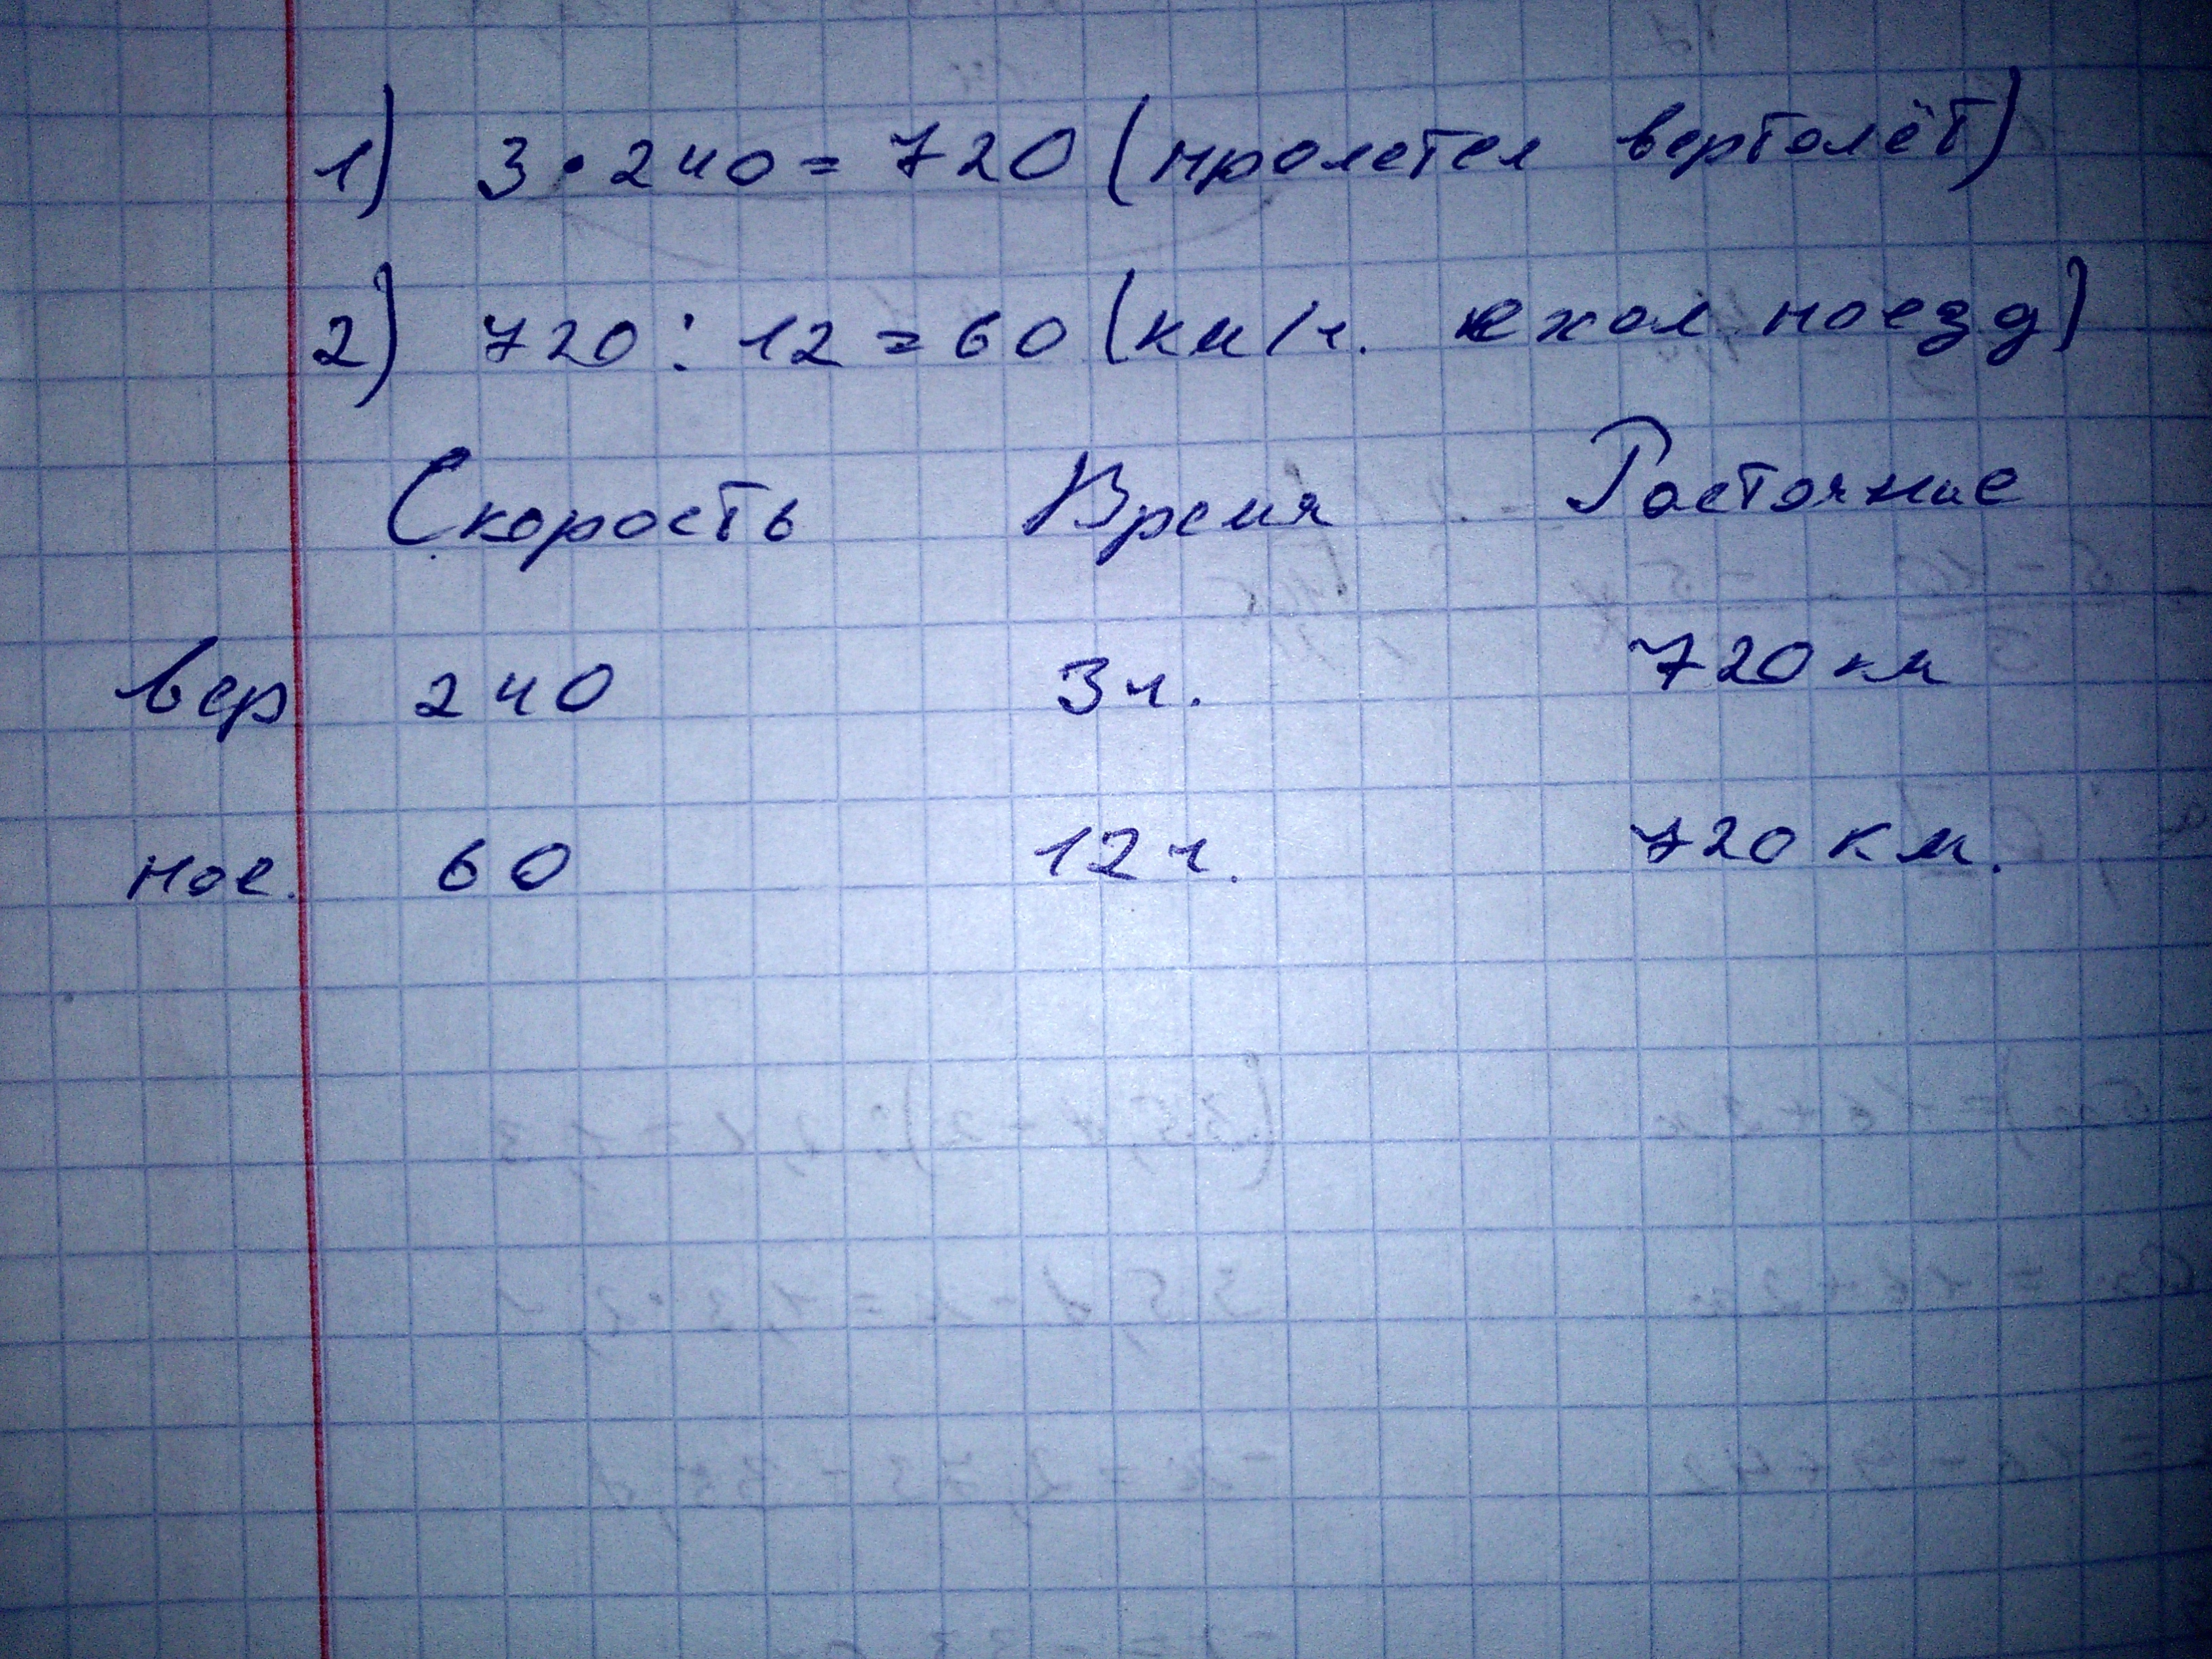 1) 3 • 240 = 720 (пролетел вертолёт)
2) 720 : 12 = 60 (км/ч. ехал поезд)
Скорость Время Растояние
вер 240 3 ч. 720 км
пое. 60 12 ч. 720 км.